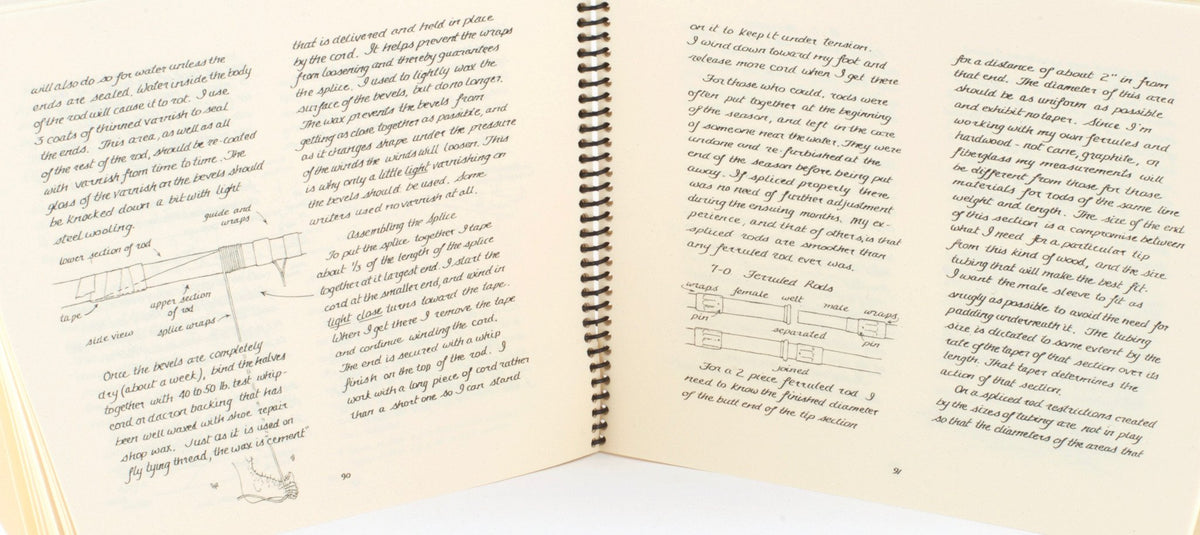 will also do so for water unless the
ends are sealed. Water inside the body
of the rod will cause it to rot. I use
3 coats of thinned varnish to seal
the ends. This area, as well as all
of the rest of the rod, should be re-coated
with varnish from time to time. The
gloss of the varnish on the bevels should
be knocked down a bit with light
steel wooling.
guide and
wraps
lower section of rod
tape
upper section
of rod
splice wraps
side view
Once the bevels are completely
dry (about a week), bind the halves
together with 40 to 50 lb. test whip-
cord or dacron backing that has
been well waxed with shoe repair
shop wax. Just as it is used on
fly tying thread, the wax is "cement"
that is delivered and held in place
by the cord. It helps prevent the wraps
from loosening and thereby guarantees
the splice. I used to lightly wax the
surface of the bevels, but do no longer.
The wax prevents the bevels from
getting as close together as possible, and
as it changes shape under the pressure
of the winds the winds will loosen. This
is why only a little light varnishing on
the bevels should be used. Some
writers used no varnish at all.
Assembling the Splice
To put the splice together I tape
about 1/3 of the length of the splice
together at it largest end. I start the
cord at the smaller end, and wind in
tight close turns toward the tape.
When I get there I remove the tape
and continue winding the cord.
The end is secured with a whip
finish on the top of the rod. I
work with a long piece of cord rather
than a short one so I can stand
90
on it to keep it under tension.
I wind down toward my foot and
release more cord when I get there
For those who could, rods were
often put together at the beginning
of the season, and left in the care
of someone near the water. They were
undone and re-furbished at the
end of the season before being put
away. If spliced properly there
was no need of further adjustment
during the ensuing months. My ex-
perience, and that of others, is that
spliced rods are smoother than
any ferruled rod ever was.
7-0 Ferruled Rods
wraps female welt male wraps
pin separated pin
joined
For a 2 piece ferruled rod I
need to know the finished diameter
of the butt end of the tip section
for a distance of about 2" in from
that end. The diameter of this area
should be as uniform as possible
and exhibit no taper. Since I'm
working with my own ferrules and
hardwood - not cane, graphite, or
fiberglass my measurements will
be different from those for those
materials for rods of the same line
weight and length. The size of the end
of this section is a compromise between
what I need for a particular tip
from this kind of wood, and the size
tubing that will make the best fit.
I want the male sleeve to fit as
snugly as possible to avoid the need for
padding underneath it. The tubing
size is dictated to some extent by the
rate of the taper of that section over its
length. That taper determines the
action of that section.
On a spliced rod restrictions created
by the sizes of tubing are not in play
so that the diameters of the areas that
91